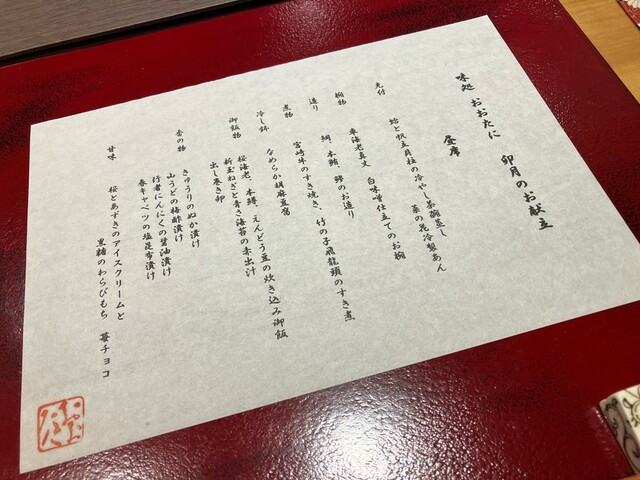 味処 おおたに 卯月のお献立
昼席
先付 蛤と帆立貝柱の冷やし茶碗蒸し
菜の花冷製あん
椀物 車海老真丈 白味噌仕立てのお椀
造り 鯛、本鮪、鰹のお造り
煮物 宮崎牛のすき焼き、竹の子飛龍頭のすき煮
冷し鉢 なめらか胡麻豆腐
御飯物 桜海老、本鱒、えんどう豆の炊き込み御飯
新玉ねぎと青さ海苔の赤出汁
出し巻き卵
香の物 きゅうりのぬか漬け
山うどの梅酢漬け
行者にんにくの醤油漬け
春キャベツの塩昆布漬け
甘味 桜とあずきのアイスクリームと
黒糖のわらびもち 苺チョコ